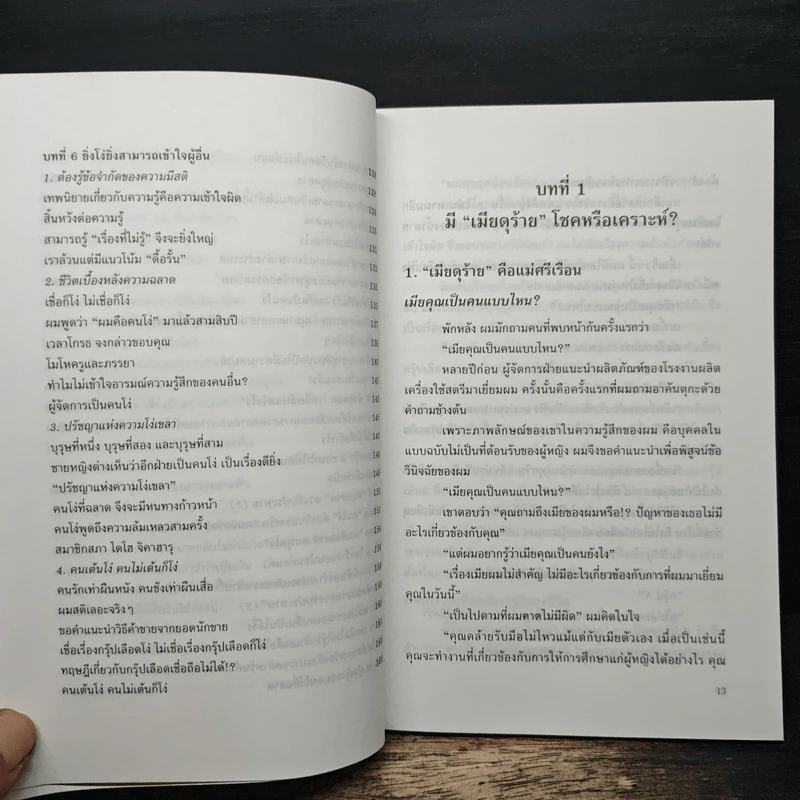 บทที่ 6 ยิ่งโง่ยิ่งสามารถเข้าใจผู้อื่น
1. ต้องรู้ข้อจำกัดของความมีสติ
เทพนิยายเกี่ยวกับความรู้คือความเข้าใจผิด
สิ้นหวังต่อความรู้
สามารถรู้ “เรื่องที่ไม่รู้” จึงจะยิ่งใหญ่
เราล้วนแต่มีแนวโน้ม “ดื้อรั้น”
2. ชีวิตเบื้องหลังความฉลาด
เชื่อก็โง่ ไม่เชื่อก็โง่
ผมพูดว่า “ผมคือคนโง่” มาแล้วสามสิบปี
เวลาโกรธ จงกล่าวขอบคุณ
โมโหครูและภรรยา
ทำไมไม่เข้าใจอารมณ์ความรู้สึกของคนอื่น?
ผู้จัดการเป็นคนโง่
3. ปรัชญาแห่งความโง่เขลา
บุรุษที่หนึ่ง บุรุษที่สอง และบุรุษที่สาม
ชายหญิงต่างเห็นว่าอีกฝ่ายเป็นคนโง่ เป็นเรื่องดียิ่ง
“ปรัชญาแห่งความโง่เขลา”
คนโง่ที่ฉลาด จึงจะมีหนทางก้าวหน้า
คนโง่พูดถึงความล้มเหลวสามครั้ง
สมาชิกสภา ไดโฮ จิคาฮารุ
4. คนเต้นโง่ คนไม่เต้นก็โง่
คนรักเท่าผืนหนัง คนชังเท่าผืนเสื่อ
ผมสติเลอะจริงๆ
ขอคำแนะนำวิธีค้าขายจากยอดนักขาย
เชื่อเรื่องกรุ๊ปเลือดก็โง่ ไม่เชื่อเรื่องกรุ๊ปเลือดก็โง่
ทฤษฎีเกี่ยวกับกรุ๊ปเลือดเชื่อถือไม่ได้!?
คนเต้นโง่ คนไม่เต้นก็โง่
บทที่ 1
มี “เมียดุร้าย” โชคหรือเคราะห์?
1. “เมียดุร้าย” คือแม่ศรีเรือน
เมียคุณเป็นคนแบบไหน?
พักหลัง ผมมักถามคนที่พบหน้ากันครั้งแรกว่า
“เมียคุณเป็นคนแบบไหน?”
หลายปีก่อน ผู้จัดการฝ่ายแนะนำผลิตภัณฑ์ของโรงงานผลิต
เครื่องใช้สตรีมาเยี่ยมผม ครั้งนั้นคือครั้งแรกที่ผมถามอาคันตุกะด้วย
คำถามข้างต้น
เพราะภาพลักษณ์ของเขาในความรู้สึกของผม คือบุคคลใน
แบบฉบับไม่เป็นที่ต้อนรับของผู้หญิง ผมจึงขอคำแนะนำเพื่อพิสูจน์ข้อ
วินิจฉัยของผม
“เมียคุณเป็นคนแบบไหน?”
เขาตอบว่า “คุณถามถึงเมียของผมหรือ!? ปัญหาของเธอไม่มี
อะไรเกี่ยวข้องกับคุณ”
“แต่ผมอยากรู้ว่าเมียคุณเป็นคนยังไง”
“เรื่องเมียผมไม่สำคัญ ไม่มีอะไรเกี่ยวข้องกับการที่ผมมาเยี่ยม
คุณในวันนี้”
“เป็นไปตามที่ผมคาดไม่มีผิด” ผมคิดในใจ
“คุณคล้ายรับมือไม่ไหวแม้แต่กับเมียตัวเอง เมื่อเป็นเช่นนี้
คุณจะทำงานที่เกี่ยวข้องกับการให้การศึกษาแก่ผู้หญิงได้อย่างไร คุณ
13